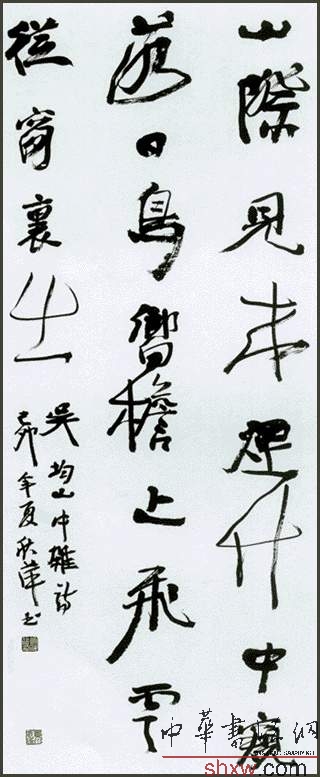 山際見来煙竹中窺
落日鳥嚮檐上飛雲
從窗裏出
吳均山中雜詩
己卯年夏秋萍书
中華書畫網
shxw.com